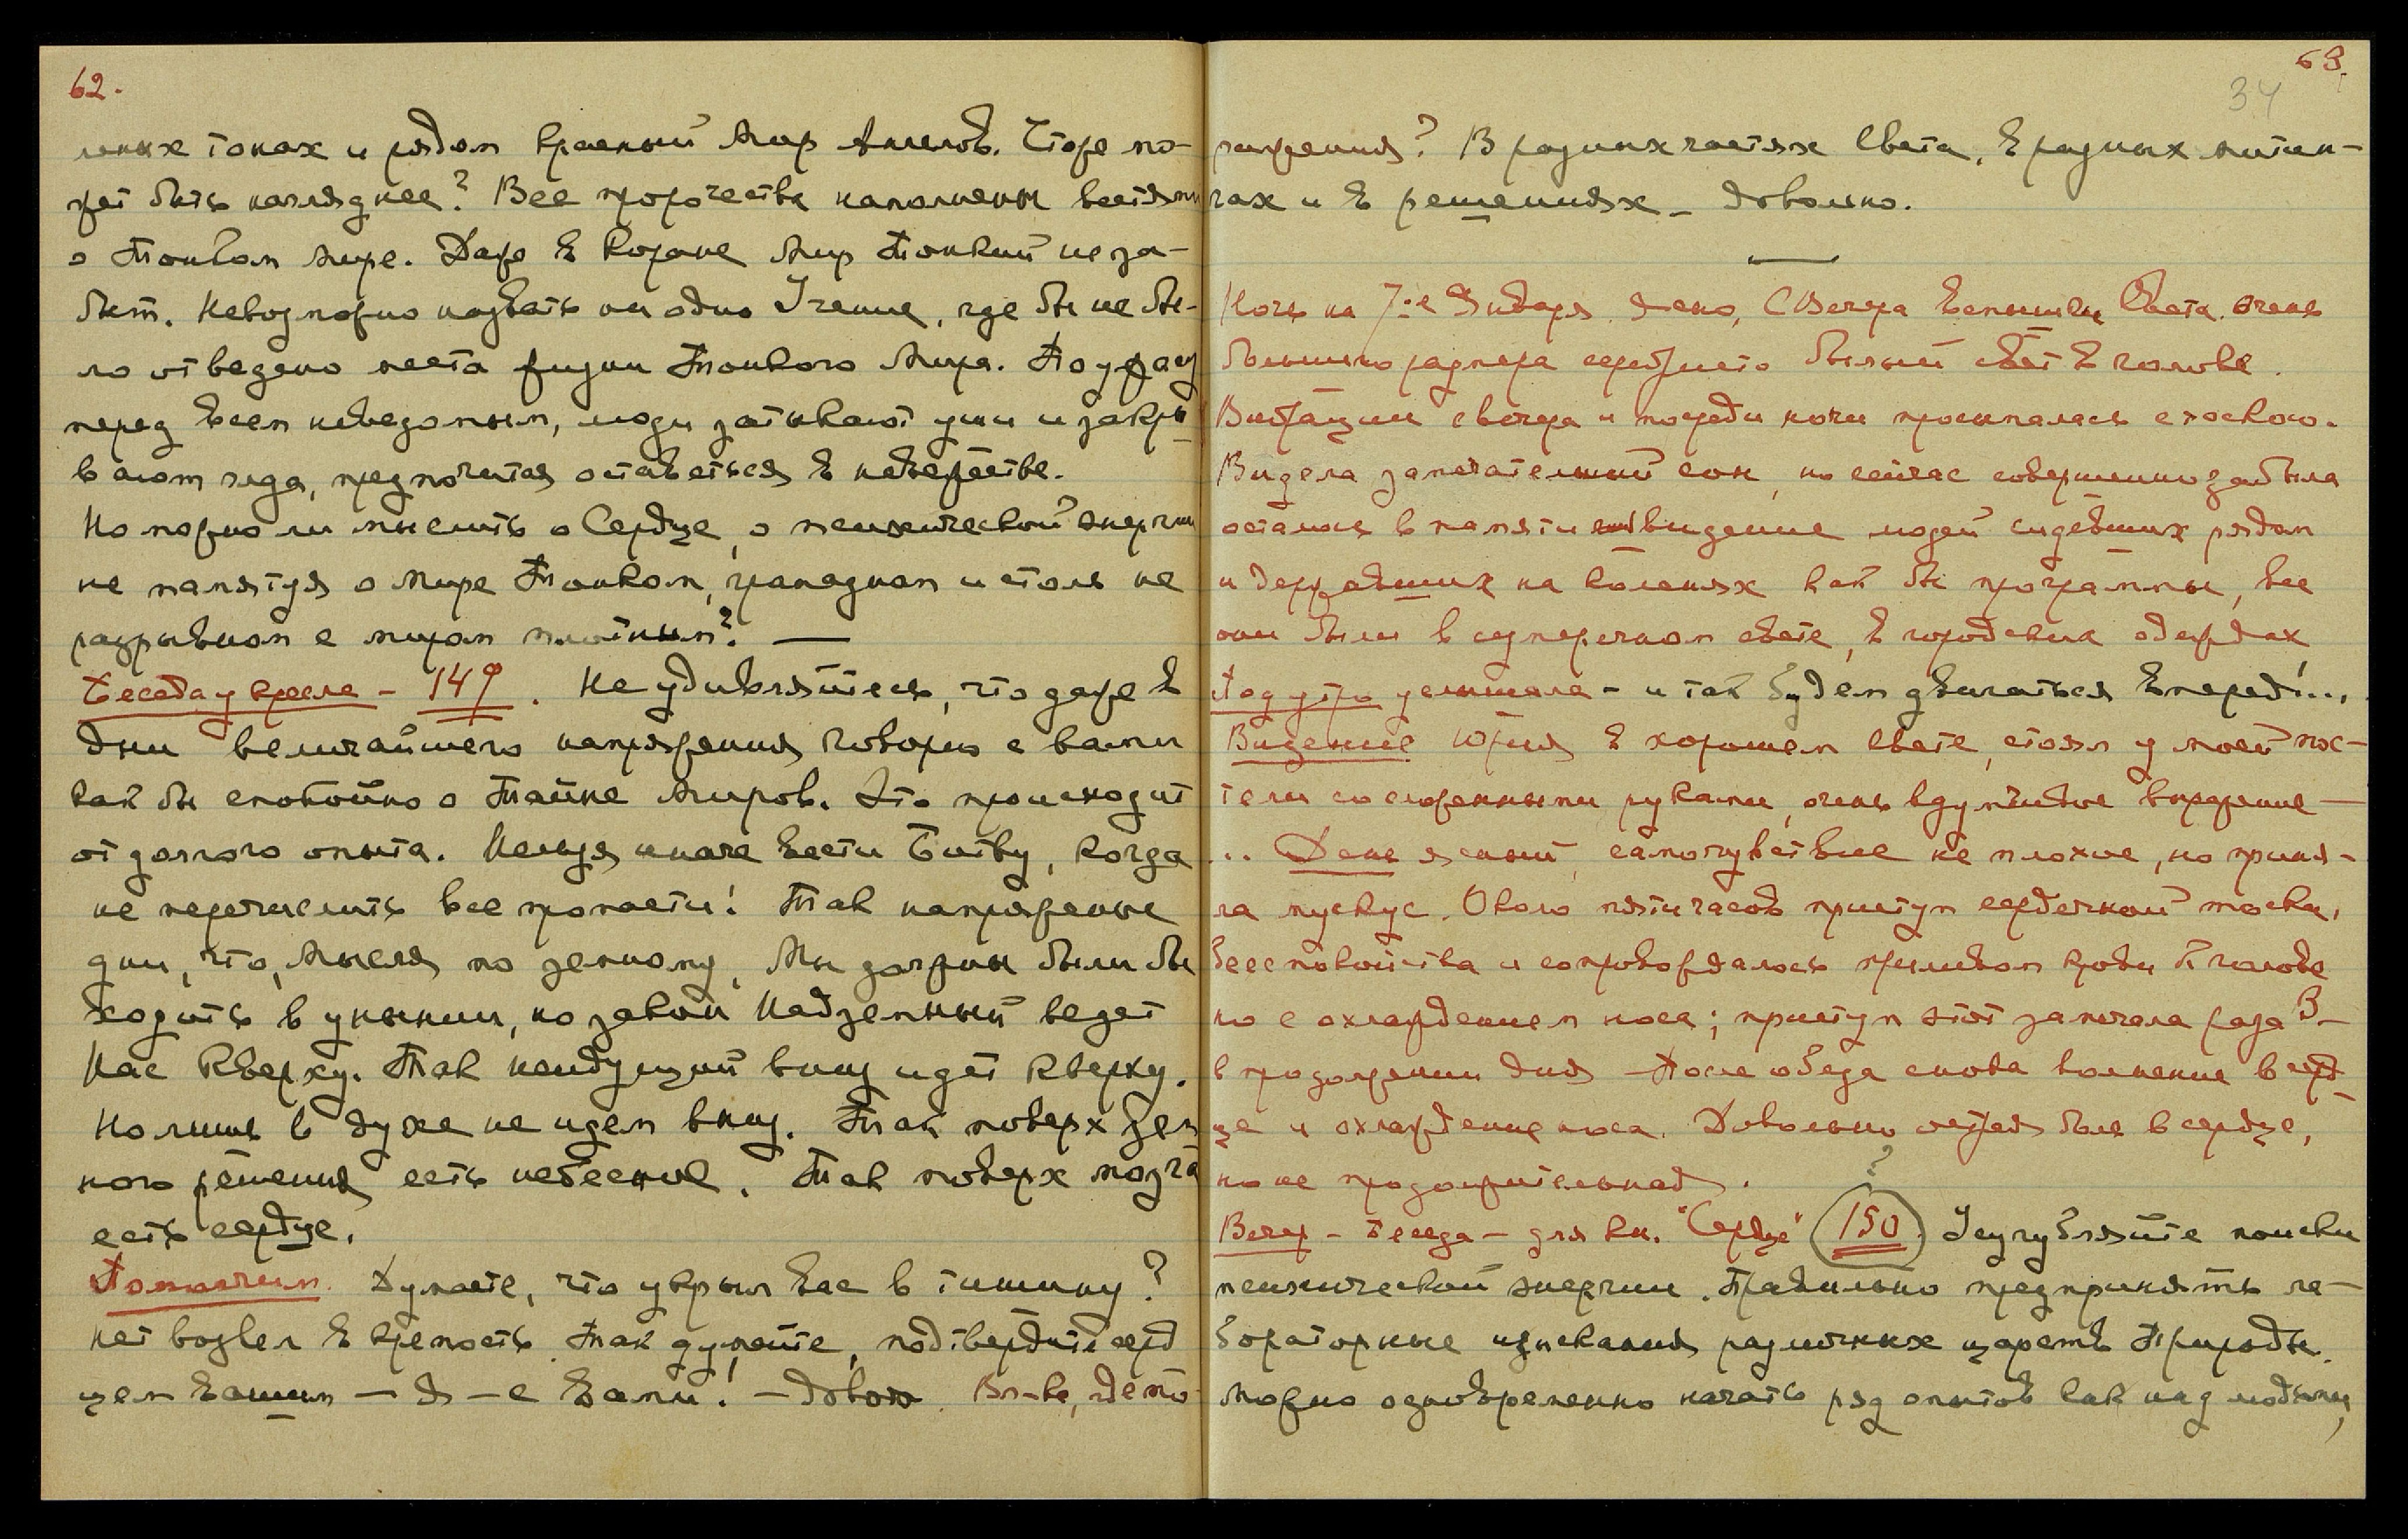 62.
мных тонах и рядом красный Мир Ангелов. Что же мо-
жет быть нагляднее? Все пророчества наполнены вестями
о Тонком Мире. Даже в Коране Мир Тонкий не за-
быт. Невозможно назвать ни одно Учение, где бы не бы-
ло отведено места жизни Тонкого Мира. Но ужасу
перед всем неведомым, люди затыкают уши и закры-
вают глаза, предпочитая оставаться в невежестве.
Но можно ли мыслить о Сердце, о психической энергии
не памятуя о Мире Тонком, громадном и столь не
разрывном с миром плотным? —
Беседа у кресла - 149. Не удивляйтесь, что даже в
дни величайшего напряжения Говорю с вами
как бы спокойно о Тайне Миров. Это происходит
от долгого опыта. Нельзя иначе вести Битву, когда
не перечислить все пропасти! Так напряженные
дни, что, мысля по земному, Мы должны были бы
ходить в унынии, но закон Надземный ведет
Нас Кверху. Так неидущий вниз идет кверху.
Но лишь в духе не идем вниз. Так поверх зем
ного решения есть небесное. Так поверх мозга
есть сердце.
Помолчим. Думаете, что укрыл вас в тишину?
нет возвел в крепость. Так думайте, подтвердите серд
цем вашим — Я — с вами. — Довол.
63.
34
ражения? В разных частях Света, в разных митин-
гах и в решениях — довольно.
Ночь на 7-е Января. Ясно, С Вечера вспышки Света. очень
большого размера серебристо белый свет в голове.
Вибрации с вечера и посреди ночи просыпалась с тоскою.
Видела замечательный сон, но сейчас совершенно забыла
осталось в памяти видение людей сидевших рядом
и державших на коленях как бы программы, все
они были в сумеречном свете, в городских одеждах
Под утро услышала - и так будем двигаться вперед!..,
Видение Юрия в хорошем свете, стоял у моей пос-
тели со сложенными руками, очень вдумчивое выражение —
... День ясный, самочувствие не плохое, но приня-
ла мускус. Около пяти часов приступ сердечной тоски,
беспокойства и сопровождалось приливом крови к голове
но с охлаждением носа; приступ этот замечала раза 3 —
в продолжении дня — После обеда снова волнение в серд-
це и охлаждение носа. Довольно острая боль в сердце,
но не продолжительная.
?
Вечер - Беседа - для кн. "Сердце" 150. Усугубляйте поиски
психической энергии. Правильно предпринять ла-
бораторные изыскания различных царств Природы.
Можно одновременно начать ряд опытов как над людьми,